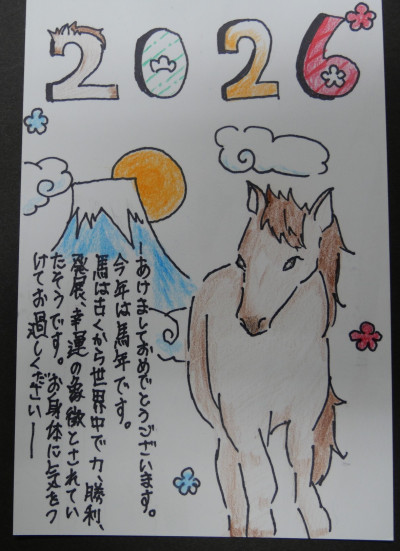 2026
―あけましておめでとうございます。
今年は馬年です。
馬は古くから世界中で力、勝利、
発展、幸運の象徴とされてい
たそうです。お身体に気をつ
けてお過しください―